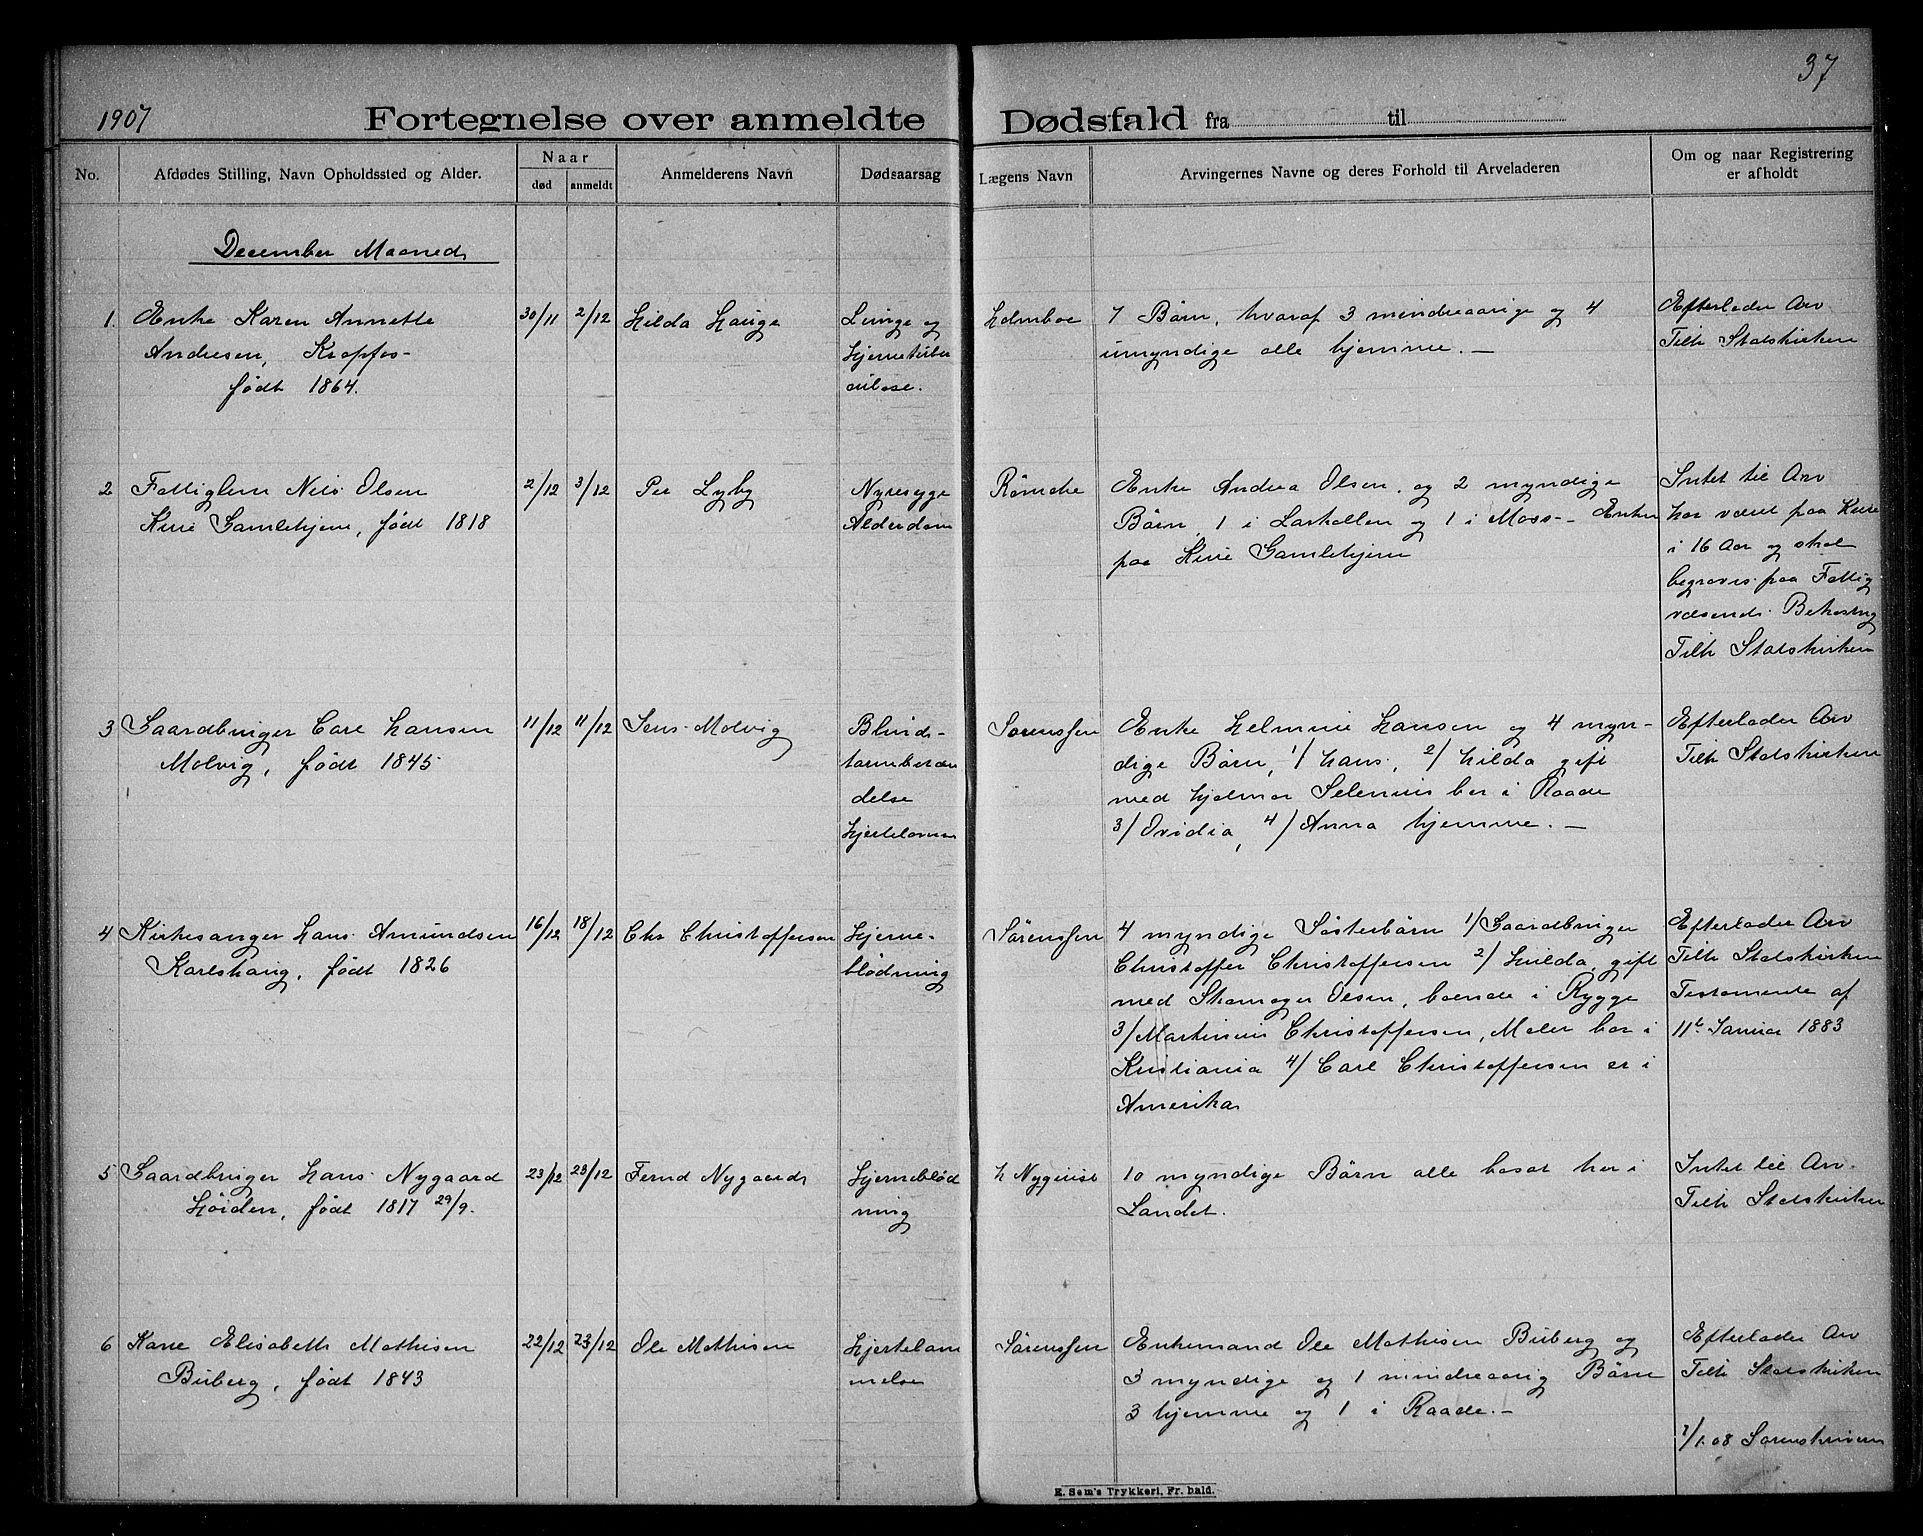 1907
37
Fortegnelse over anmeldte Dødsfald fra til
No.
Afdødes Stilling, Navn Opholdssted og Alder.
Naar
død
anmeldt
Anmelderens Navn
Dødsaarsag
Lægens Navn
Arvingernes Navne og deres Forhold til Arveladeren
Om og naar Registrering
er afholdt
December Maaned
1. Enke Karen Annette
Andresen, Kropfos-
født 1864.
30/11
2/12
Hilda Hauge
Lunge og
Hjernetuber
culose.
Holmboe
7 Børn, hvoraf 3 mindreaarige og 4
umyndige alle hjemme. —
Efterlader Arv
Tilh Statskirken
2 Fattiglem Nils Olsen
Kure Gamlehjem, født 1818
2/12
3/12
Per Lyby
Nyresyge
Alderdom
Rømcke
Enke Andrea Olsen, og 2 myndige
Børn, 1 i Larkollen og 1 i Moss - Enken
paa Kure Gamlehjem
Intet til Arv
har været paa Kure
i 16 Aar og skal
begraves paa Fattig
væsends Bekostng
Tilh Statskirken
3 Gaardbruger Carl Hansen
Molvig, født 1845
11/12
11/12
Jens Molvig
Blind-
tarmbetæn
delse
Hjertelamm
Sørenssen
Enke Helmine Hansen og 4 myn-
dige Børn, 1/ Hans, 2/ Hilda gift
med Hjalmar Selenius bor i Raade
3/ Ovidia, 4/ Anna hjemme. —
Efterlader Arv
Tilh Statskirken
4 Kirkesanger Hans Amundsen
Karlshaug, født 1826
16/12
18/12
Chr Christoffersen
Hjerne-
blødning
Sørenssen
4 myndige Søsterbørn 1/ Gaardbruger
Christoffer Christoffersen 2/ Hulda, gift
med Skomager Olsen, boende i Rygge
3/ Martinius Christoffersen, Maler bor i
Kristiania 4/ Carl Christoffersen er i
Amerika
Efterlader Arv
Tilh Statskirken
Testamente af
11te Januar 1883
5 Gaardbruger Hans Nygaard
Høiden, født 1817 29/9.
23/12
23/12
Nygaard
Hjerneblød
ning
H Nyquist
10 myndige Børn alle bosat her i
Landet.
Intet til Arv.
Tilh Statskirken
6 Kone Elisabeth Mathisen
Buberg, født 1843
22/12
23/12
Ole Mathisen
Hjertelam
melse
Sørenssen
Enkemand Ole Mathisen Buberg og
3 myndige og 1 mindreaarig Børn
3 hjemme og 1 i Raade. —
Efterlader Arv
Tilh Statskirken
7/1.08 Sorenskriveren
E. Sem's Trykkeri, Fr. hald.